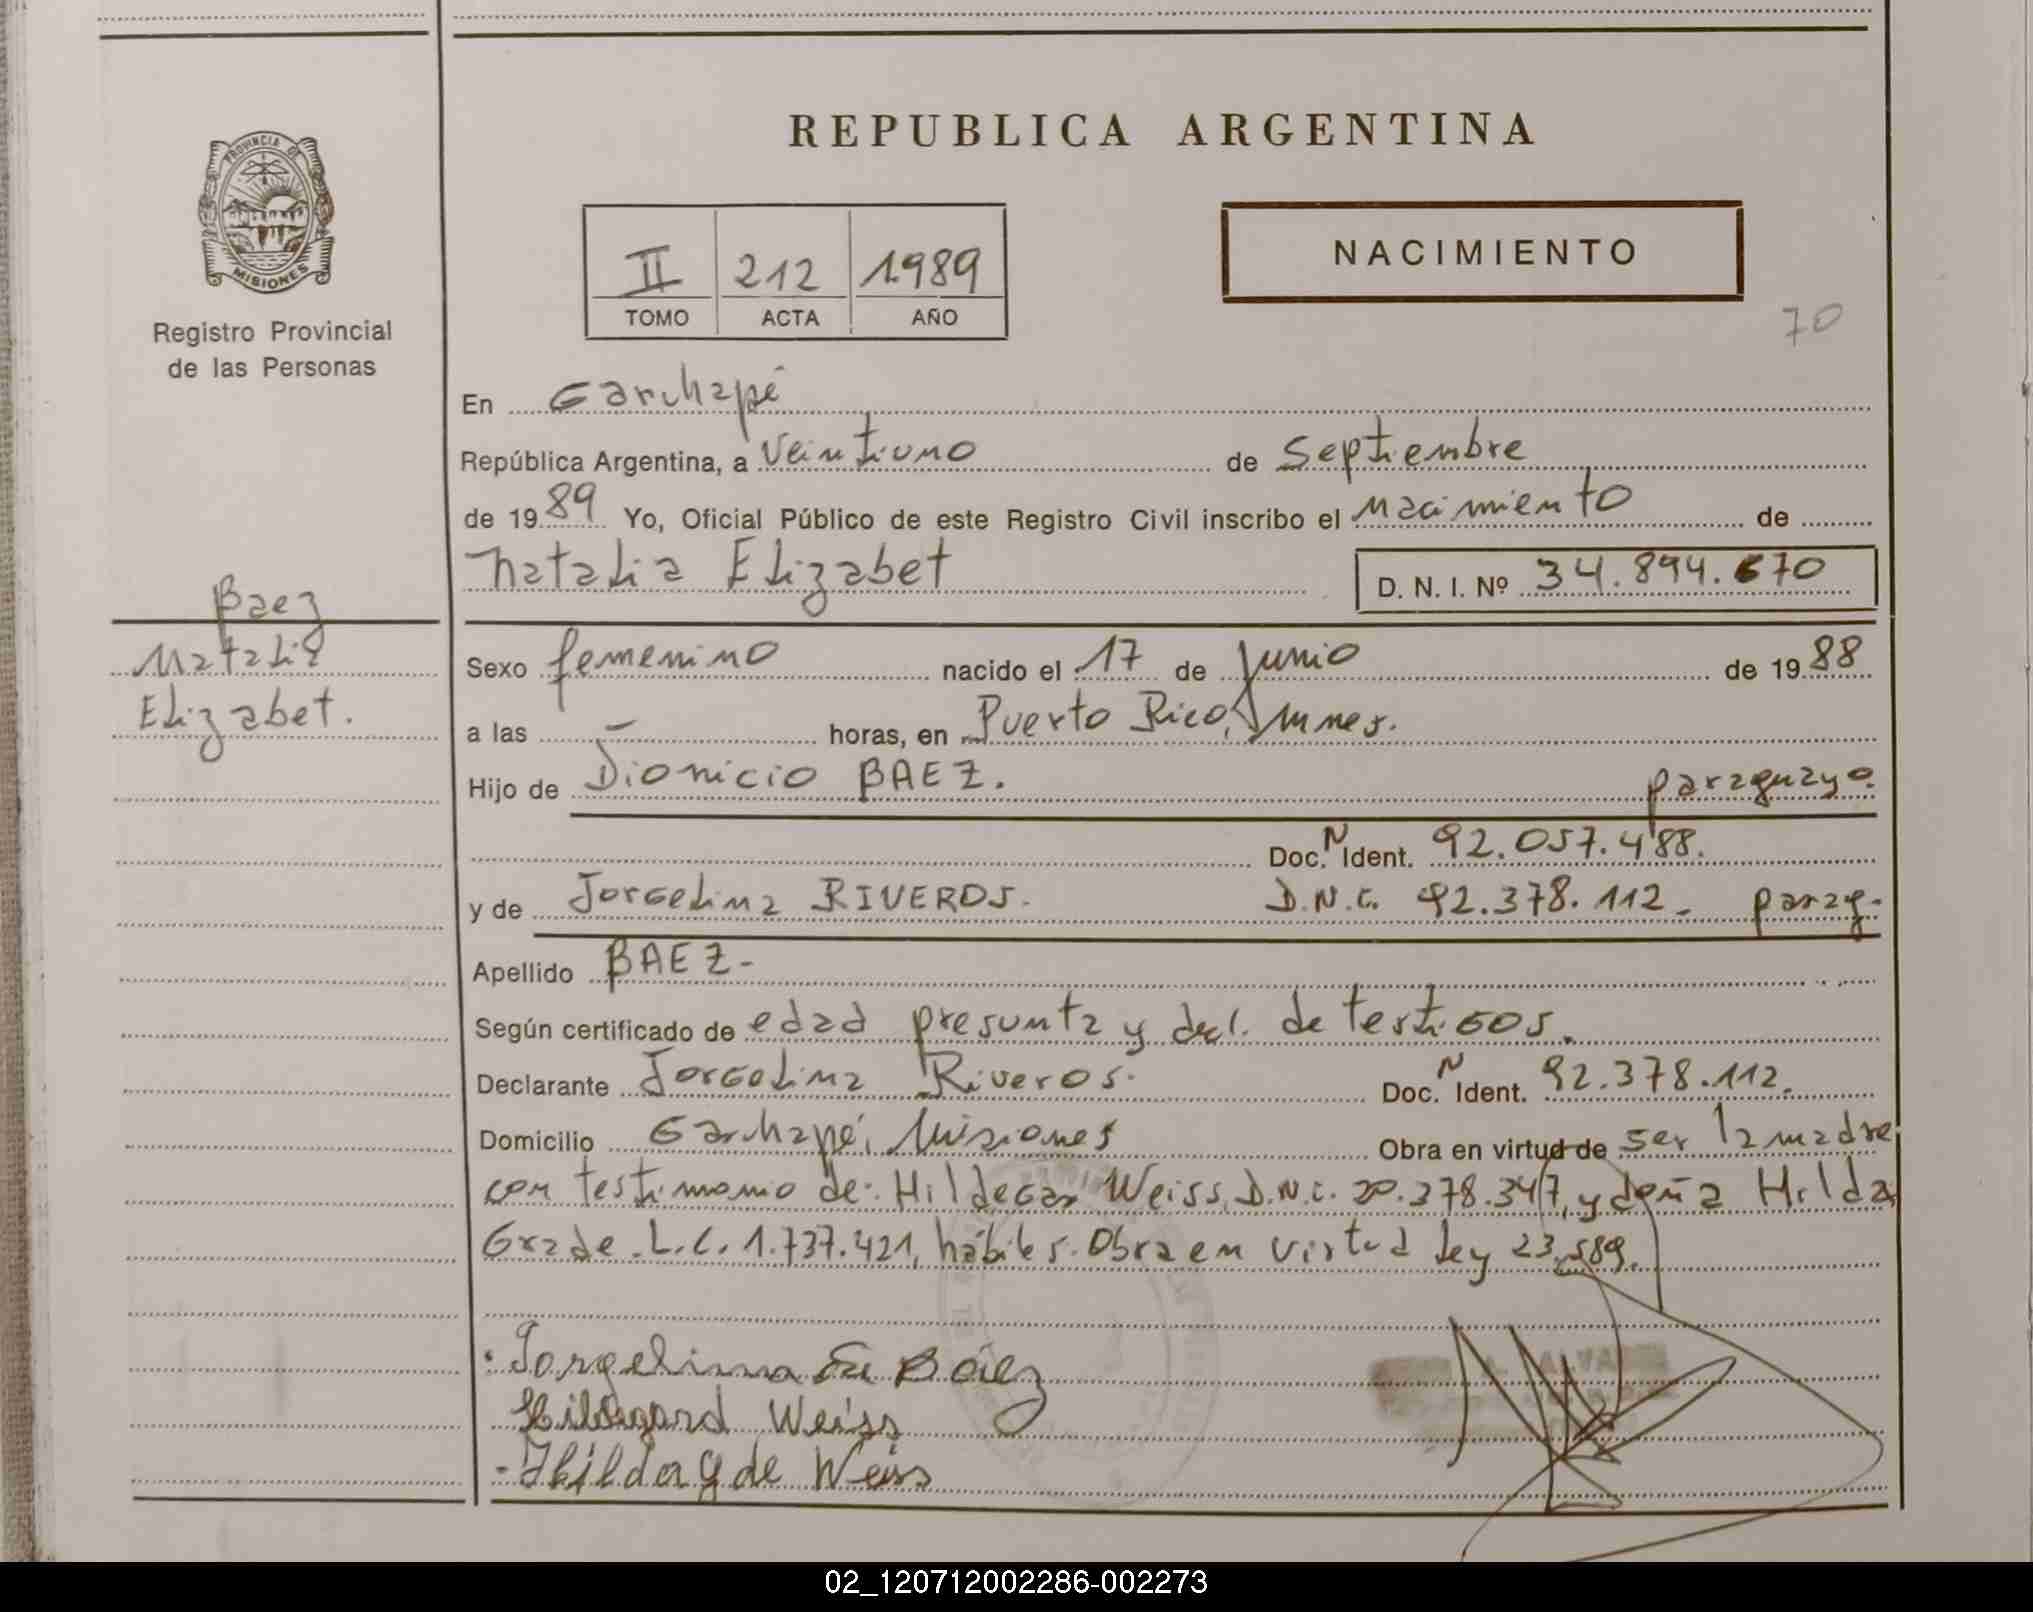 REPUBLICA ARGENTINA
PROVINCIA DE
MISIONES
Registro Provincial
de las Personas
II 212 1989
TOMO ACTA AÑO
NACIMIENTO
70
En Garuhapé
República Argentina, a Veintiuno de Septiembre
de 1989 Yo, Oficial Público de este Registro Civil inscribo el Nacimiento de
Natalia Elizabet D. N. I. Nº 34.894.670
Baez
Natalia
Elizabet.
Sexo femenino nacido el 17 de Junio de 1988
a las — horas, en Puerto Rico, Mnes.
Hijo de Dionicio BAEZ. paraguayo.
Doc. N Ident. 92.057.488.
y de Jorgelina RIVEROS. D.N.I. 92.378.112_ parag.
Apellido BAEZ-
Según certificado de edad presunta y decl. de testigos.
Declarante Jorgelina Riveros. Doc. N Ident. 92.378.112.
Domicilio Garuhapé, Misiones Obra en virtud de ser la madre
con testimonio de: Hildegar Weiss, D.N.I. 20.378.347, y doña Hilda
Grade. L.C. 1.737.421, hábiles. Obra en virtud Ley 23.589.
Jorgelina de Báez
Hildegard Weiss
Hilda G de Weiss
02_120712002286-002273